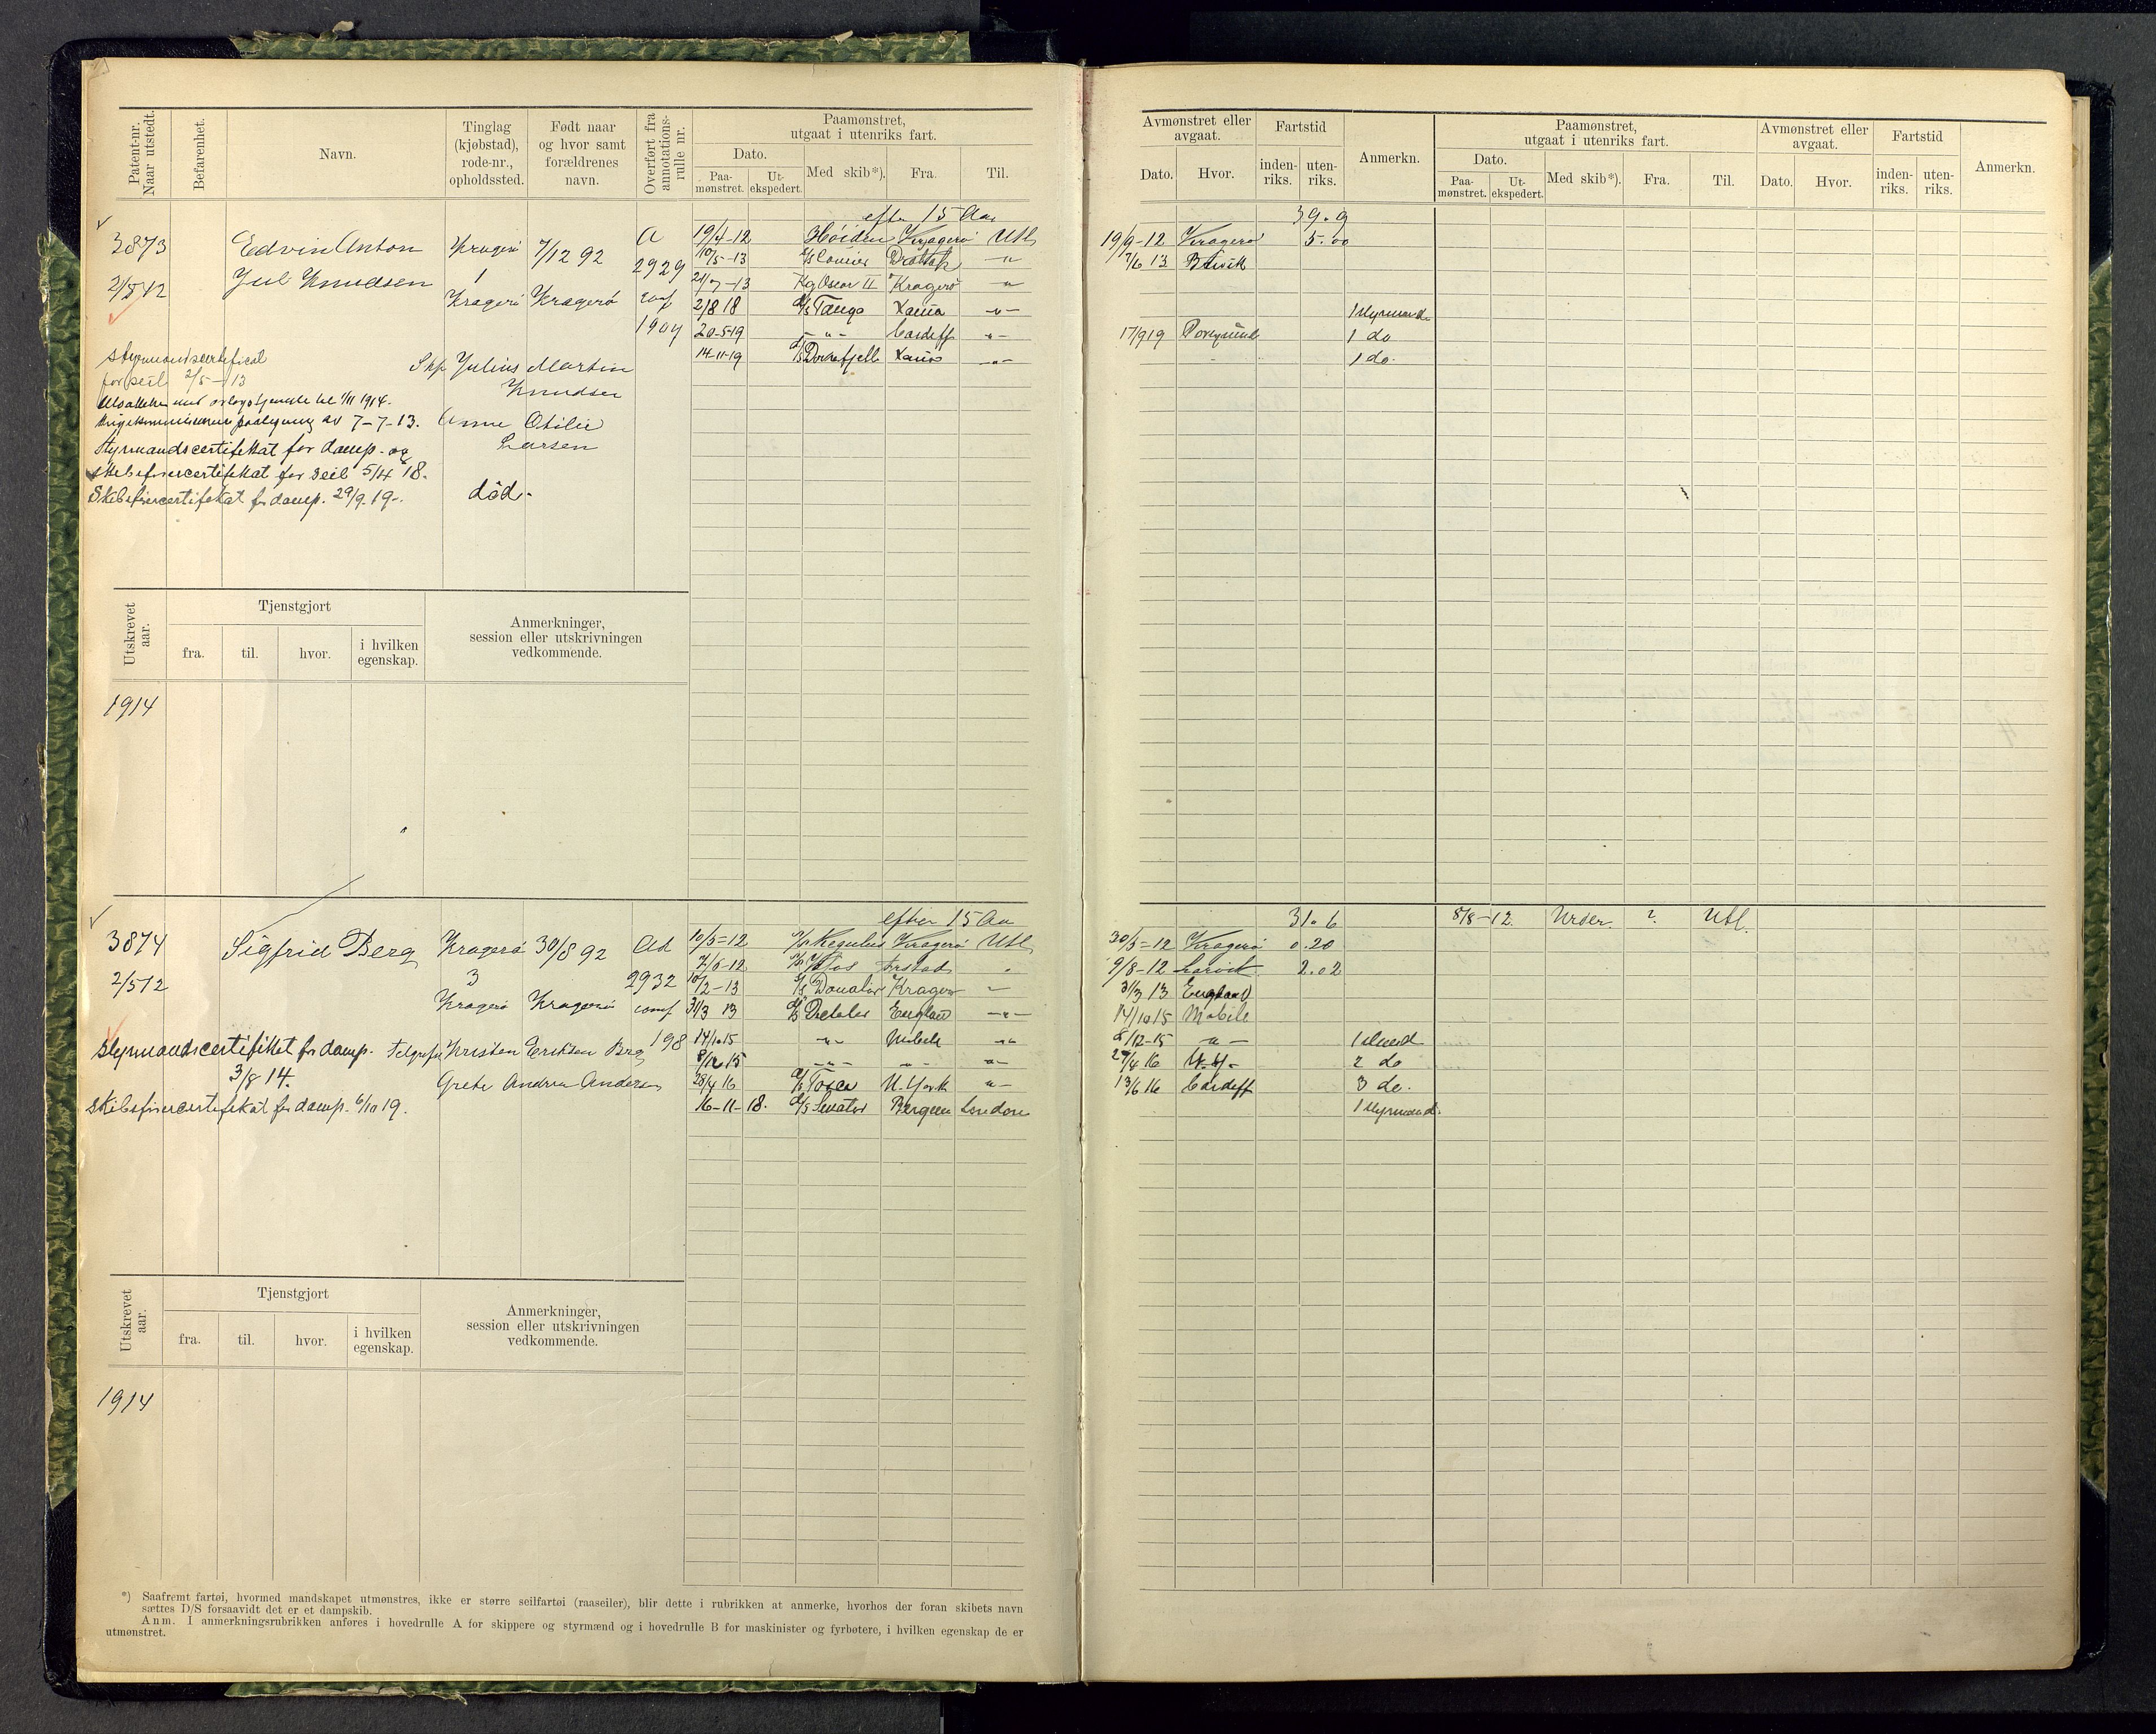 Patent-nr. Naar utstedt.
Befarenhet.
Navn.
Tinglag (kjøbstad), rode-nr., opholdssted.
Født naar og hvor samt forældrenes navn.
Overført fra annotations-rulle nr.
Paamønstret, utgaat i utenriks fart.
Dato.
Paa-mønstret.
Ut-ekspedert.
Med skib*).
Fra.
Til.
Avmønstret eller avgaat.
Dato.
Hvor.
Fartstid
inden-riks.
uten-riks.
Anmerkn.
Paamønstret, utgaat i utenriks fart.
Dato.
Paa-mønstret.
Ut-ekspedert.
Med skib*).
Fra.
Til.
Avmønstret eller avgaat.
Dato.
Hvor.
Fartstid
inden-riks.
uten-riks.
Anmerkn.
efter 15 Aar 39.9
3873 Edvin Anton Kragerø 7/12 92 A 19/4-12 Kragerø Utl 19/9-12 Kragerø 5.00
Jul Knudsen 1 2929 10/5-13 -"- 7/6 13
2/5 12 21/7-13 Kg Oscar II Kragerø -"-
Kragerø Kragerø conf 2/8 18 D/S Tanga -"- 1 styrmand
1904 20-5-19 -"- Cardiff -"- 17/9 19 1 do
14-11-19 D/S Dovrefjell -"- 1 do.
styrmandscertifical
for seil 2/5-13
Skp. Julius Martin
Knudsen
til 1/11 1914.
av 7-7-13. Anne Otilie
Larsen
Styrmandscertifikat for damp. og
skibsførercertifikat for seil 5/4 18.
Skibsførercertifikat for damp. 29/9 19-. död.
Utskrevet aar.
Tjenstgjort
fra.
til.
hvor.
i hvilken egenskap.
Anmerkninger, session eller utskrivningen vedkommende.
1914
efter 15 Aar 31.6 8/8-12 ? Utl.
3874 Sigfrid Berg Kragerø 30/8 92 Ad 10/5=12 Regulus Kragerø Utl 30/5=12 Kragerø 0.20
3 2932 7/6-12 9/8-12 Larvik 2.02
2/5 12 10/2-13 D/S Donator Kragerø -"- 31/3 13 England
Kragerø Kragerø conf 31/3 13 England -"- 14/10 15 Mobile
198 14/10 15 -"- Mobile -"- 8/12-15 -"- 1
Styrmandscertifikat for damp. Kristen Eriksen Berg
8/12 15 -"- -"- -"- 16 N.Y- 2 do
3/8 14. Grete Andrea Andersen 28/4 16 D/S Tosca N. York -"- 13/6 16 Cardiff 3 do.
Skibsførercertifikat for damp. 6/10 19. 16-11-18. D/S Senator Bergen London 1 styrmand.
Utskrevet aar.
Tjenstgjort
fra.
til.
hvor.
i hvilken egenskap.
Anmerkninger, session eller utskrivningen vedkommende.
1914
*) Saafremt fartøi, hvormed mandskapet utmønstres, ikke er større seilfartøi (raaseiler), blir dette i rubrikken at anmerke, hvorhos der foran skibets navn
sættes D/S forsaavidt det er et dampskib.
Anm. I anmerkningsrubrikken anføres i hovedrulle A for skippere og styrmænd og i hovedrulle B for maskinister og fyrbøtere, i hvilken egenskap de er
utmønstret.